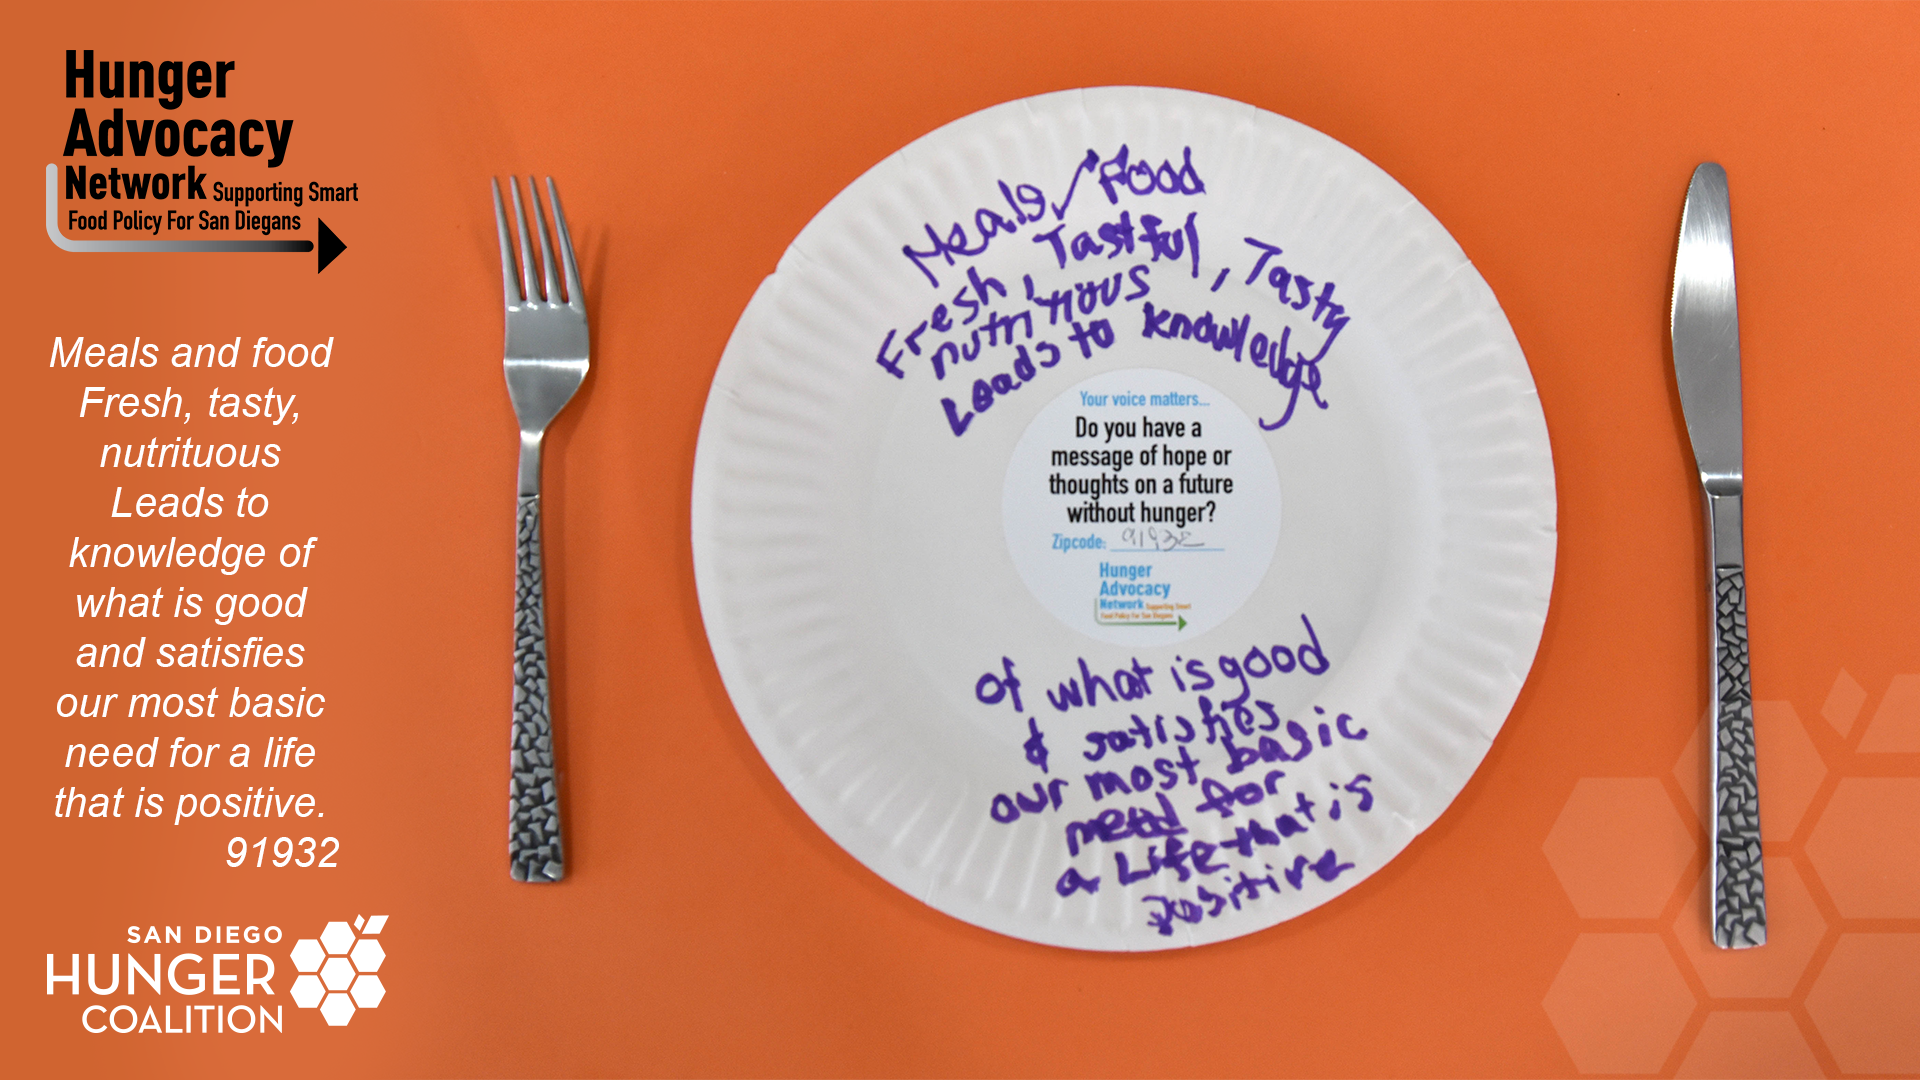 Hunger
Advocacy
Network Supporting Smart
Food Policy For San Diegans
Meals and food
Fresh, tasty,
nutrituous
Leads to
knowledge of
what is good
and satisfies
our most basic
need for a life
that is positive.
91932
SAN DIEGO
HUNGER
COALITION
Meals/Food
Fresh, Tastful, Tasty
nutritious
Leads to knowledge
Your voice matters...
Do you have a
message of hope or
thoughts on a future
without hunger?
Zipcode: 91932
Hunger
Advocacy
Network Supporting Smart
Food Policy For San Diegans
of what is good
& satisfies
our most basic
need for
a Life that is
positive